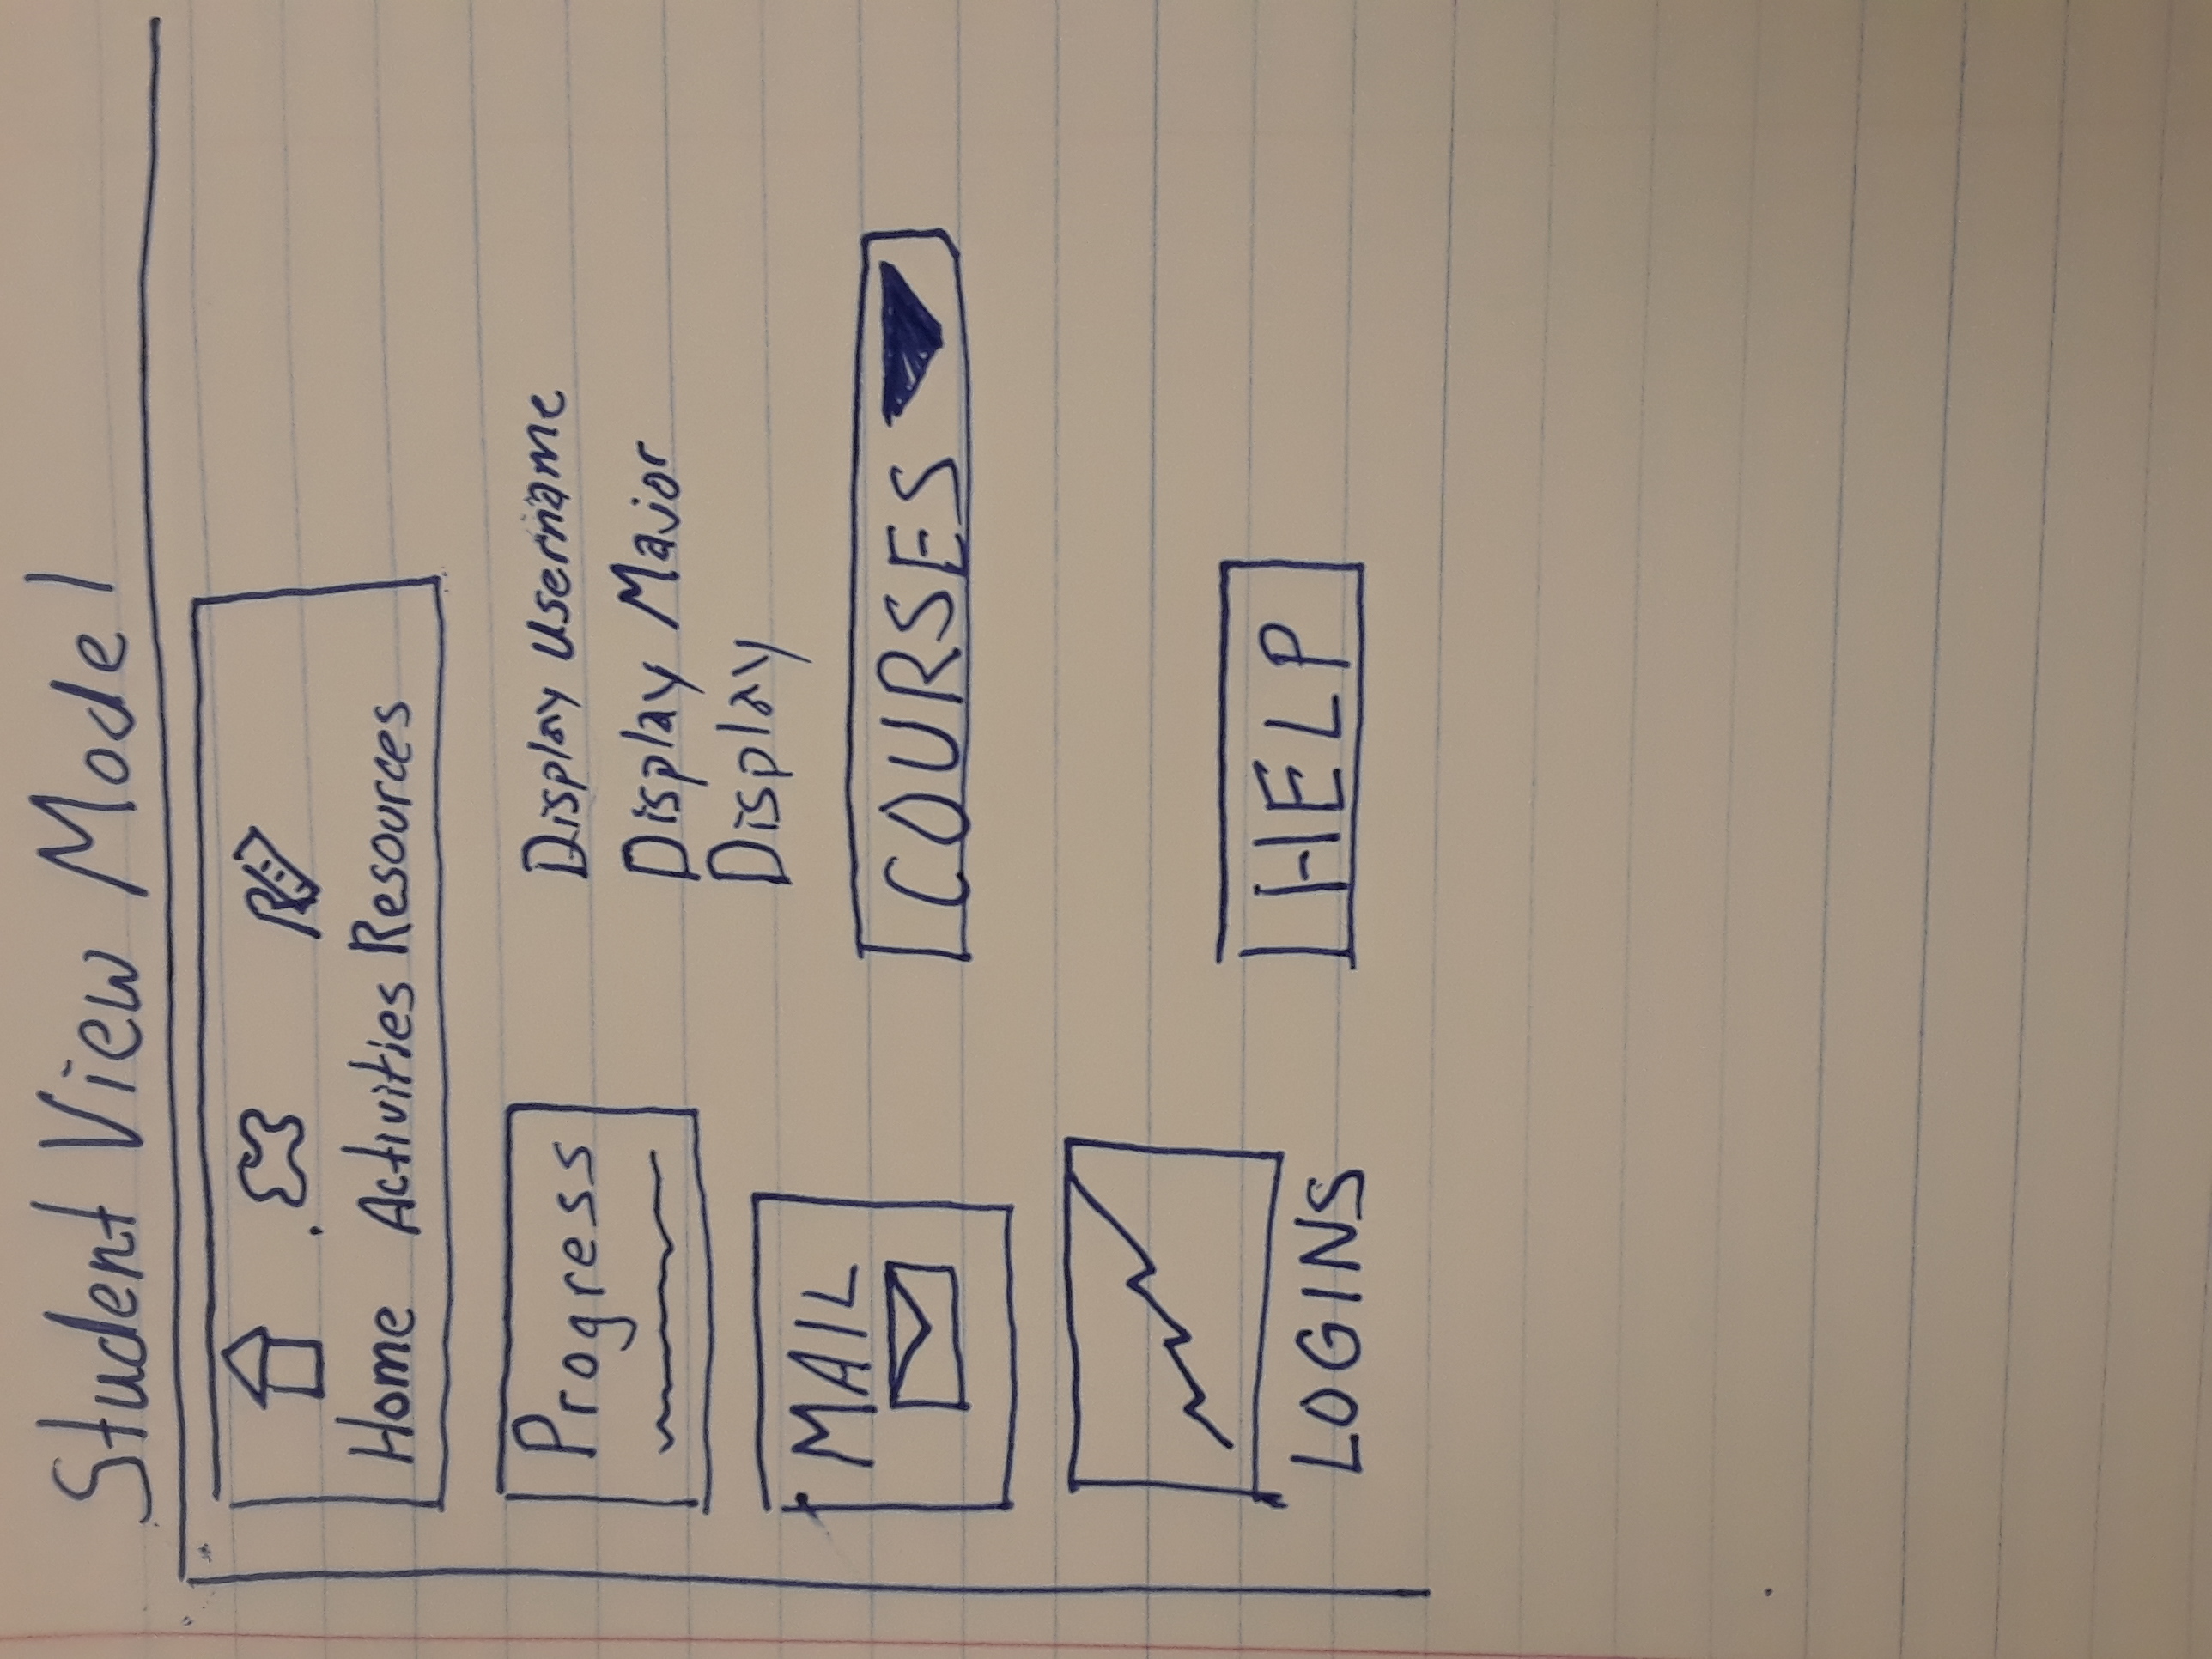 Student View Model
Home Activities Resources
Progress
Display Username
Display Major
Display
MAIL
COURSES
LOGINS
HELP